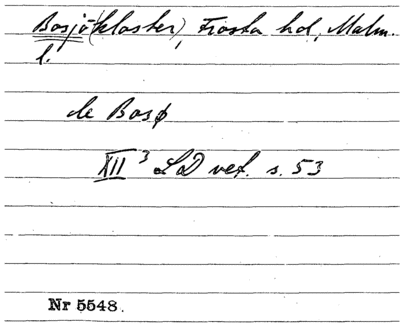 Bosjö(kloster), Frosta hd, Malm.
l.
de Bosø
XII 3 LD vet. s. 53
Nr 5548.